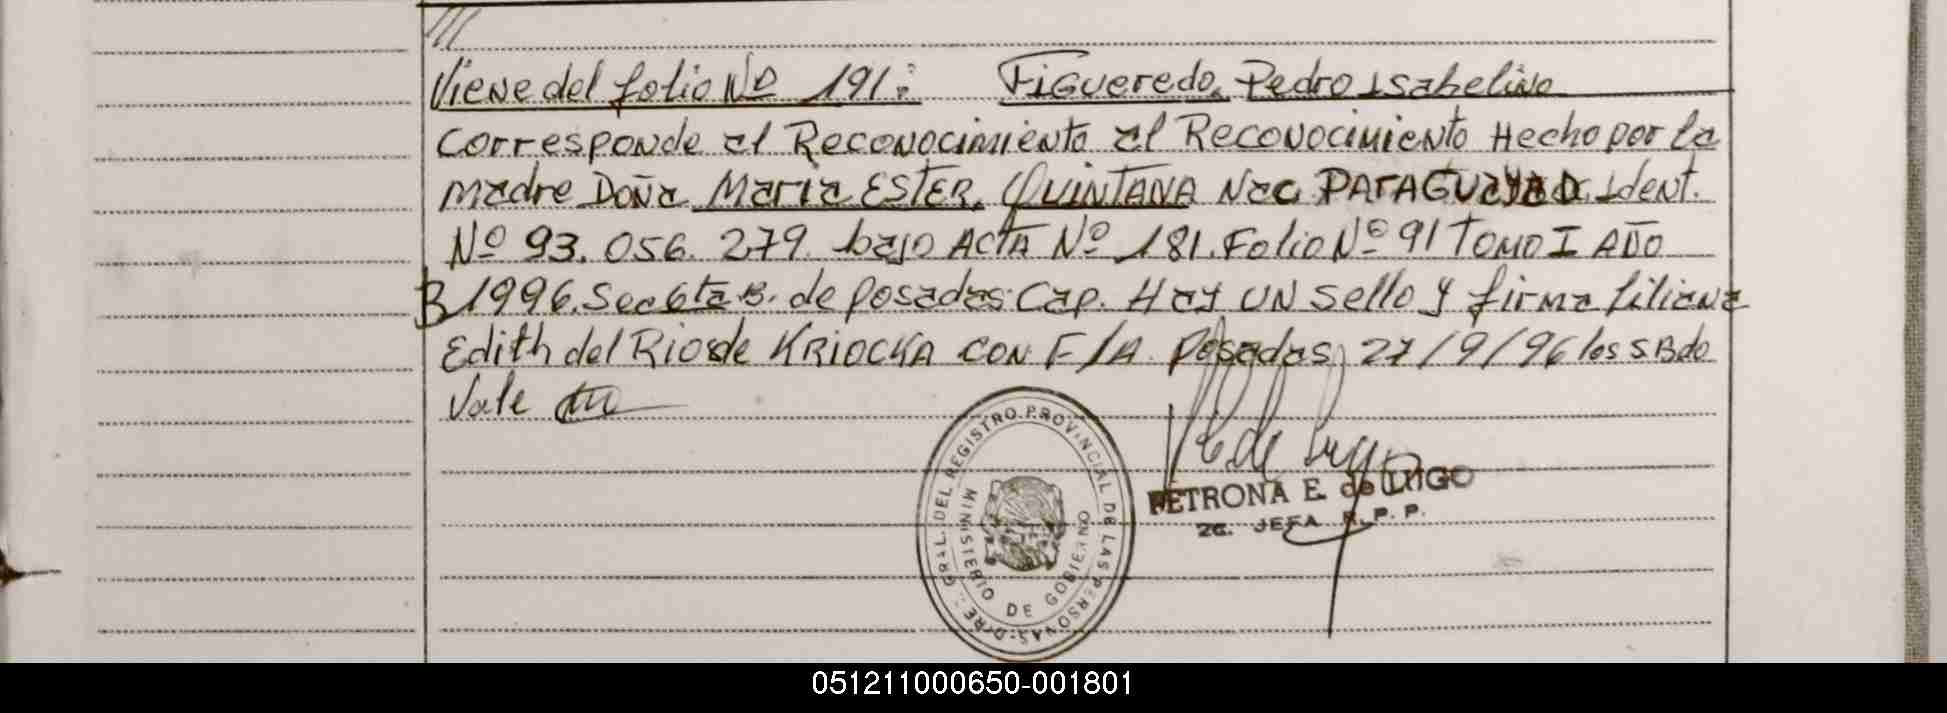 ///
Viene del folio Nº 191: Figueredo, Pedro Isabelino
corresponde al Reconocimiento al Reconocimiento Hecho por la
madre Doña Maria ESTER, QUINTANA Nac PARAGUAYA D. Ident.
Nº 93.056.279 bajo ACTA Nº 181. Folio Nº 91 TOMO I AÑO
1996. Sec 6ta B. de posadas Cap. Hay UN sello y firma Liliana
Edith del Rio de KRIOCKA CON F/A. Posadas, 27/9/96 los SB do
Vale
DIREC. GRAL. DEL REGISTRO PROVINCIAL DE LAS PERSONAS
MINISTERIO DE GOBIERNO
PETRONA E. de LUGO
2a. JEFA R.P.P.
051211000650-001801